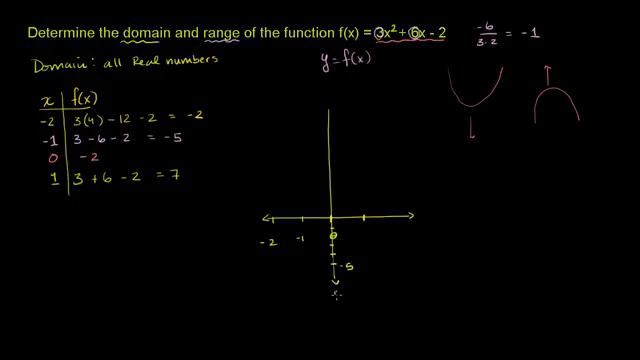 Determine the domain and range of the function f(x) = 3x² + 6x - 2
-6 / 3·2 = -1
Domain: all Real numbers
y = f(x)
x f(x)
-2 3(4) - 12 - 2 = -2
-1 3 - 6 - 2 = -5
0 -2
1 3 + 6 - 2 = 7
-2 -1
-5